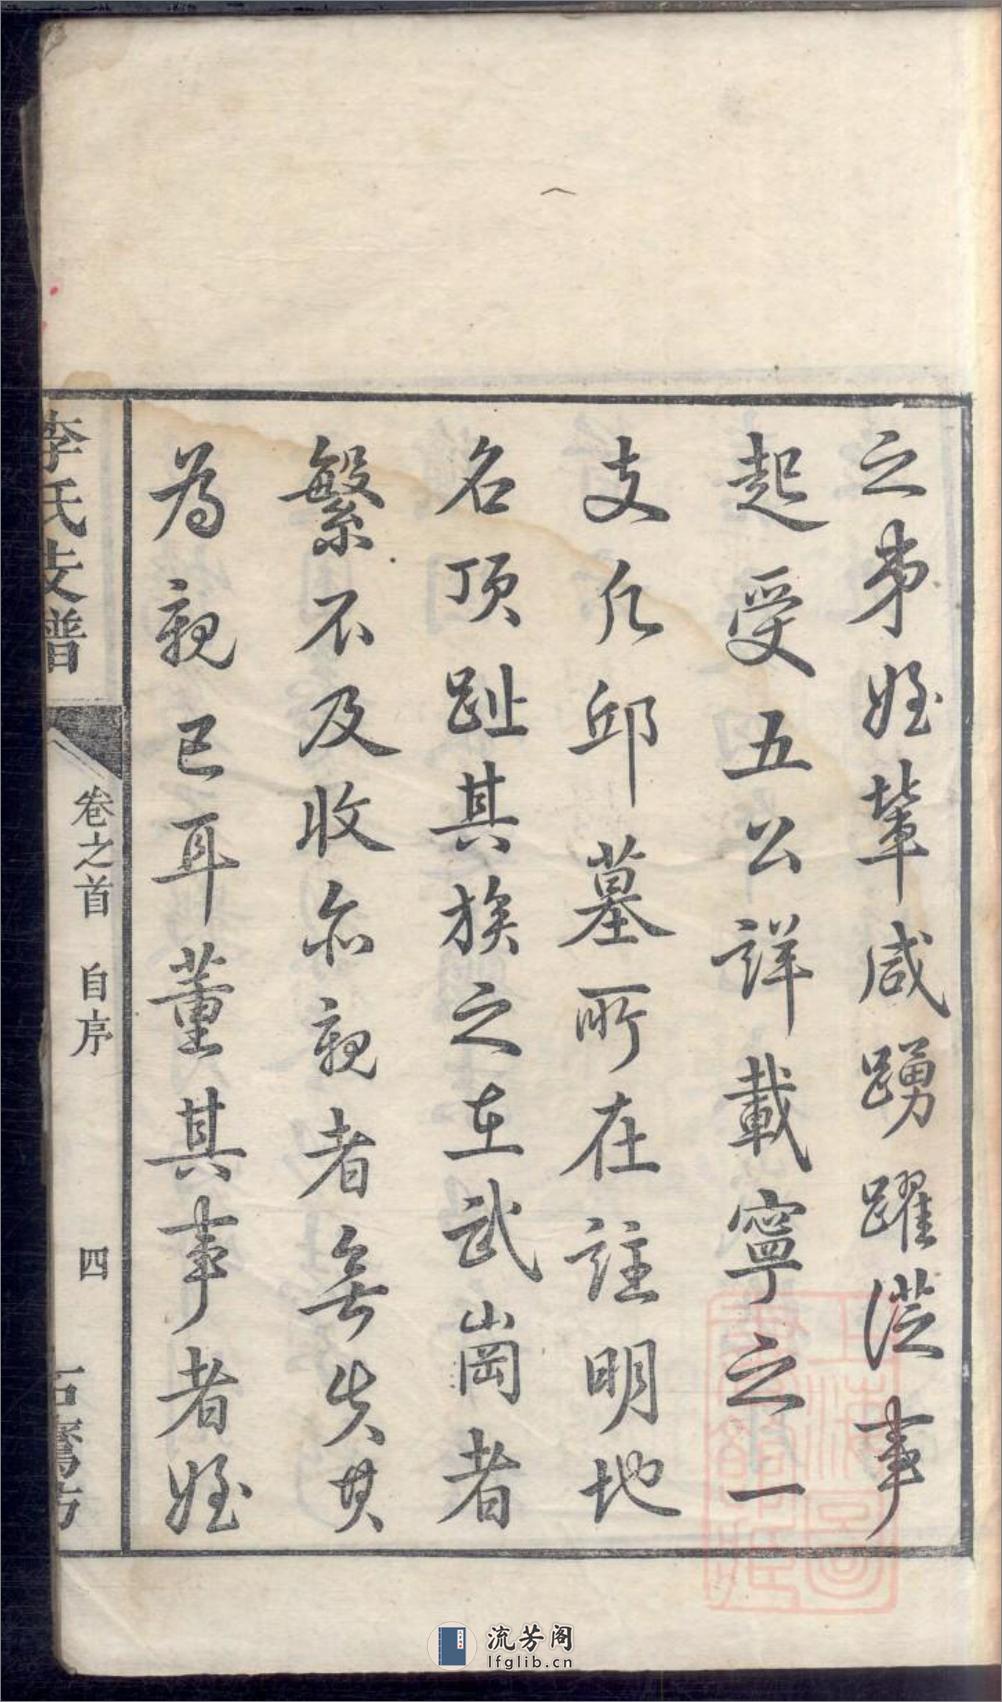 之弟姪輩咸踴躍從事
起受五公詳載寧之一
支凡邱墓所在註明地
名頂趾其族之在武崗者
繁不及收亦親者無失其
為親已耳董其事者姪
李氏支譜
卷之首 自序
四
流芳阁
lfglib.cn